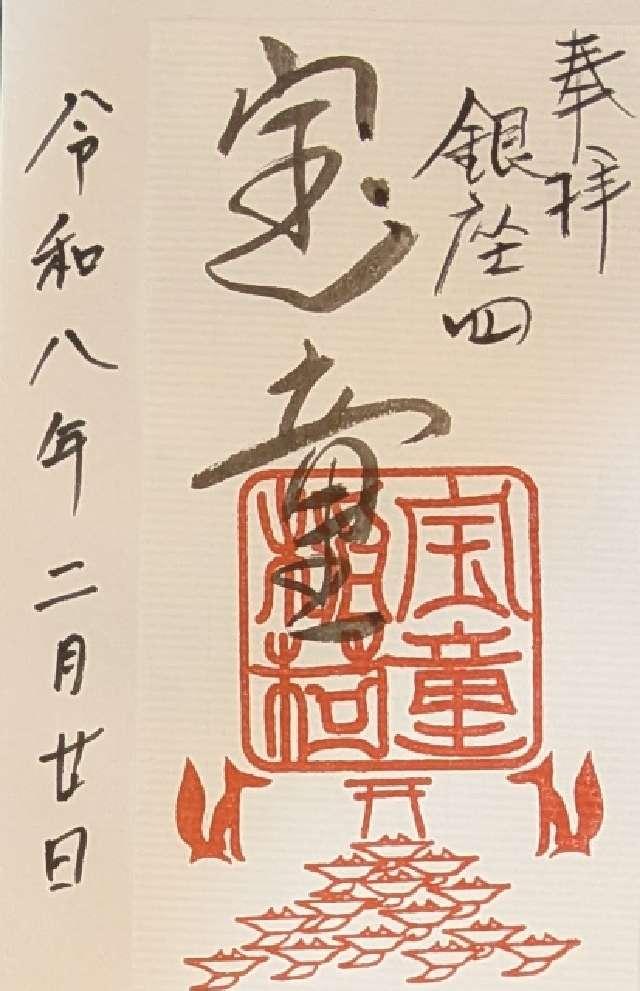 奉拝
銀座四
宝童
宝童
稲荷
令和八年二月廿日